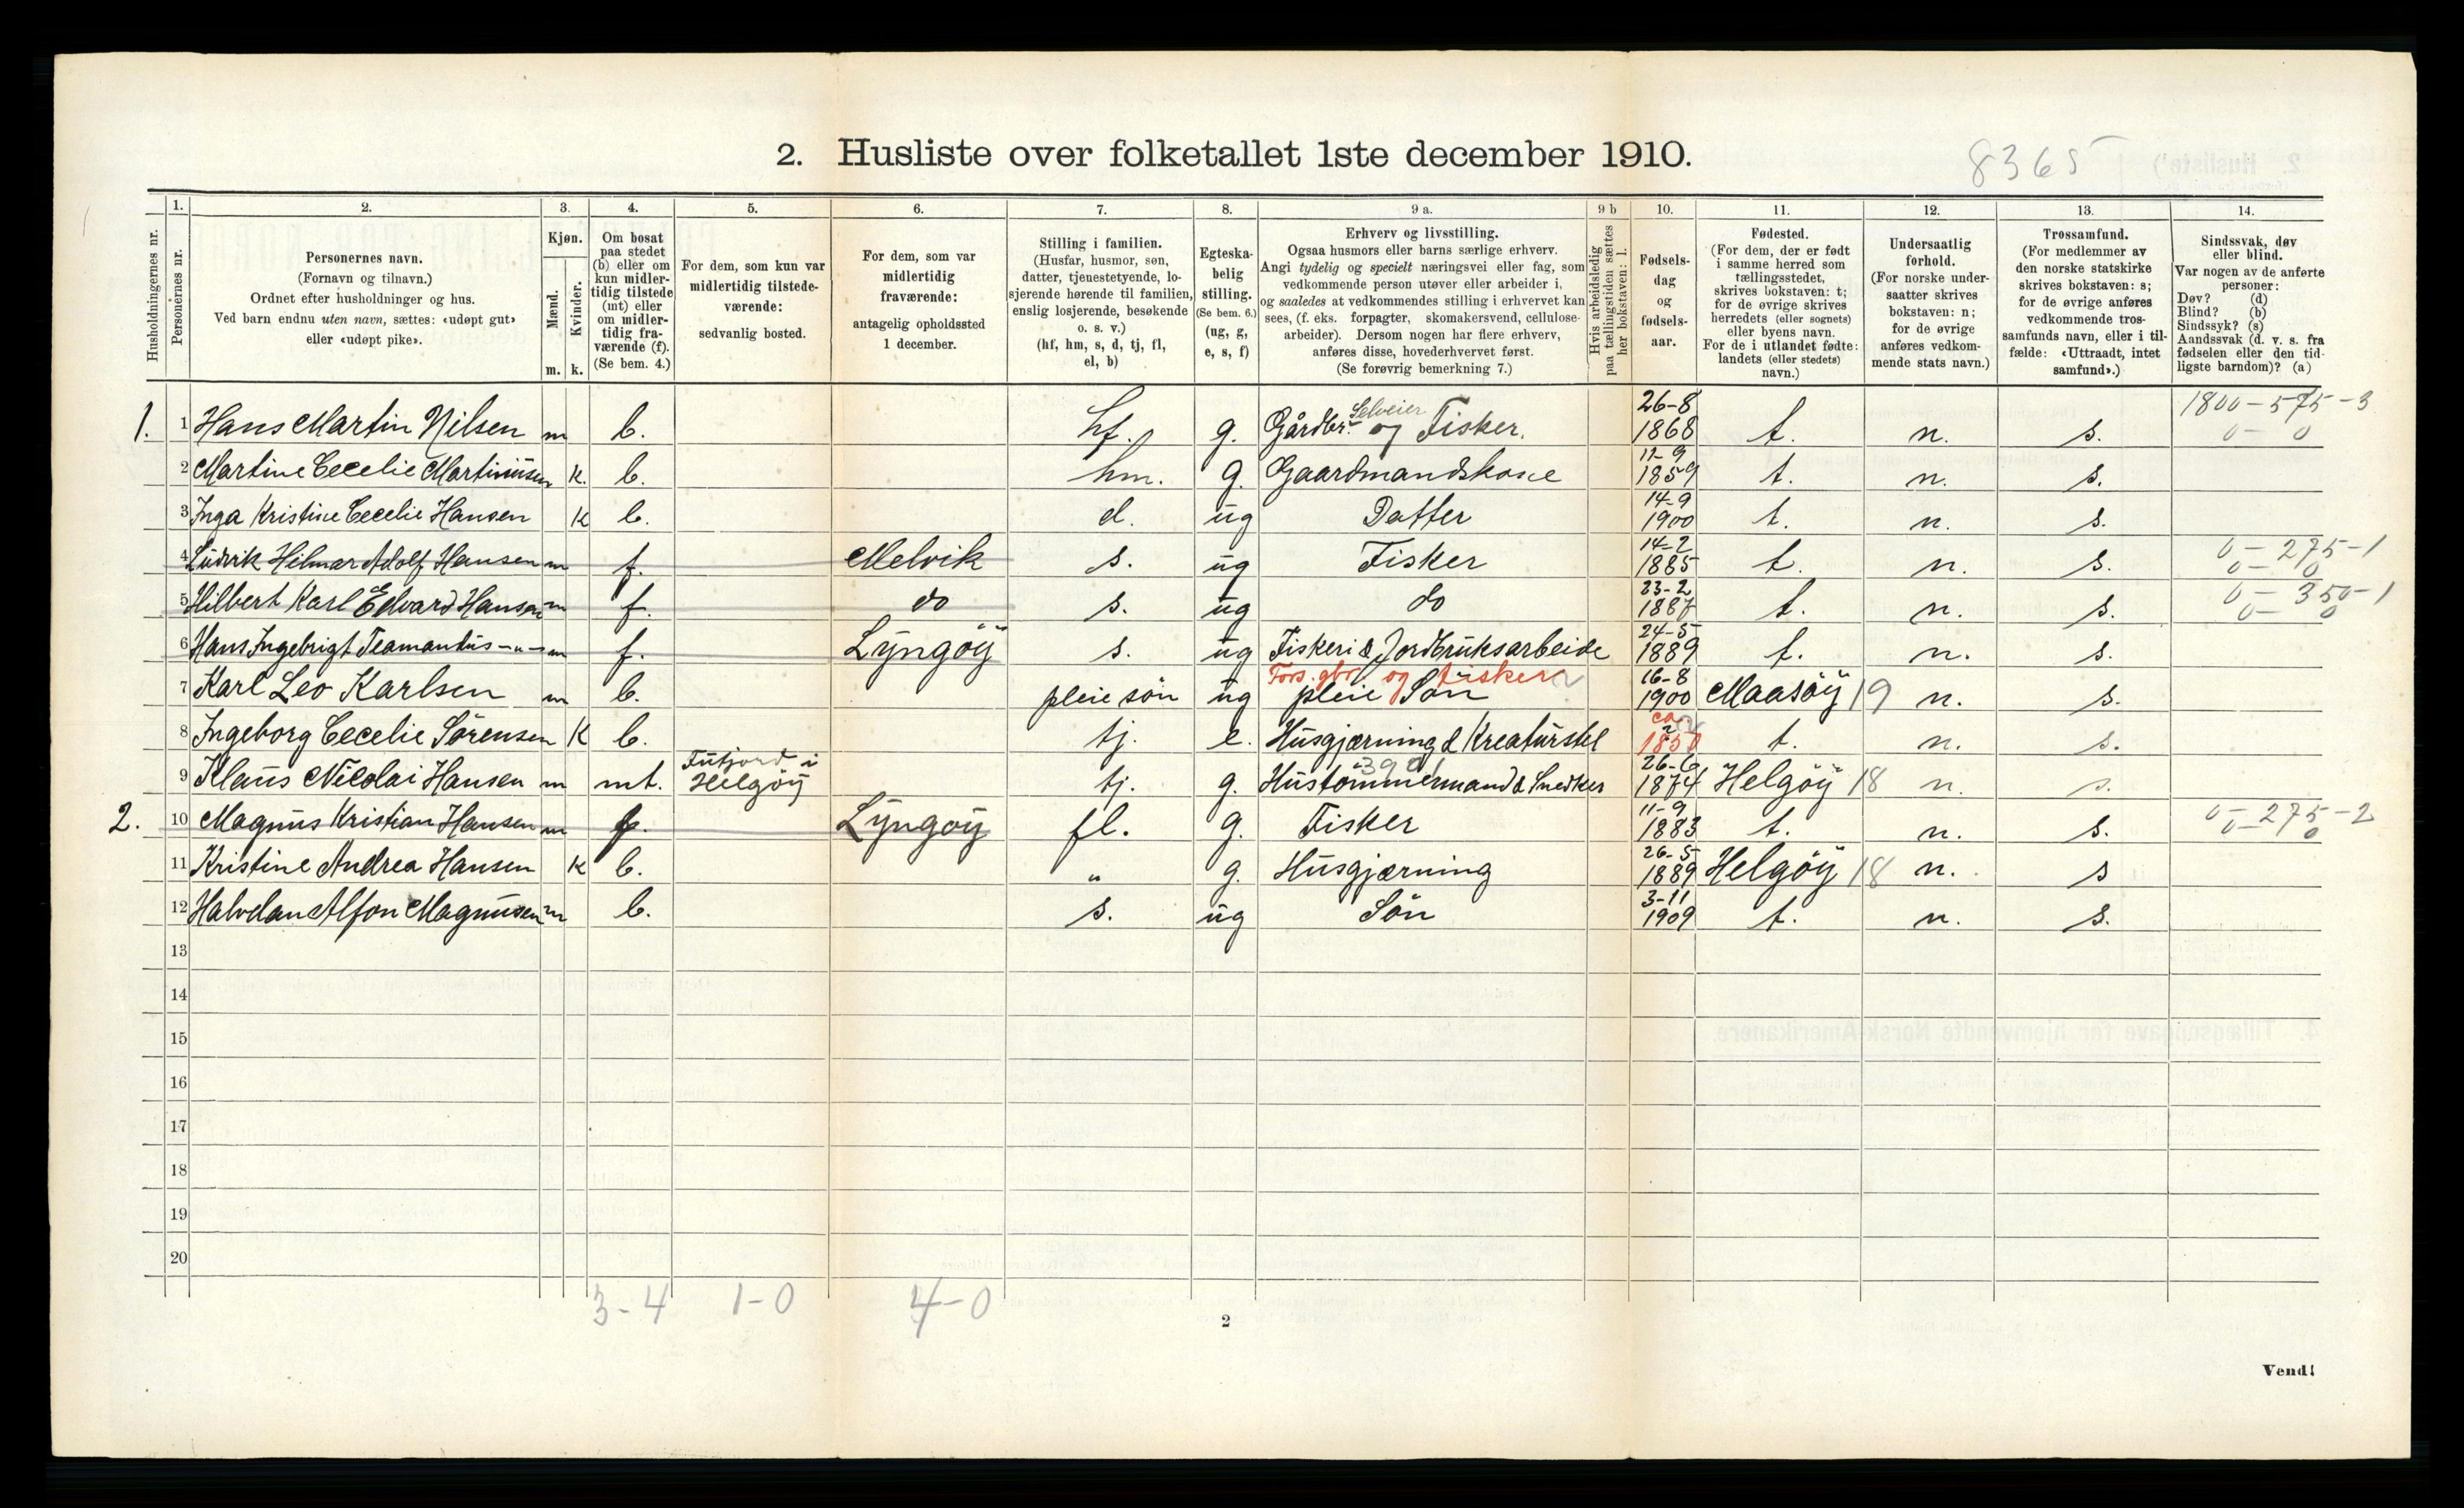 2. Husliste over folketallet 1ste december 1910.
8365
1. 2. 3. 4. 5. 6. 7. 8. 9 a. 9 b 10. 11. 12. 13. 14.
Husholdningernes nr.
Personernes nr.
Personernes navn.
(Fornavn og tilnavn.)
Ordnet efter husholdninger og hus.
Ved barn endnu uten navn, sættes: «udøpt gut»
eller «udøpt pike».
Kjøn.
Mænd.
Kvinder.
m. k.
Om bosat
paa stedet
(b) eller om
kun midler-
tidig tilstede
(mt) eller
om midler-
tidig fra-
værende (f).
(Se bem. 4.)
For dem, som kun var
midlertidig tilstede-
værende:
sedvanlig bosted.
For dem, som var
midlertidig
fraværende:
antagelig opholdssted
1 december.
Stilling i familien.
(Husfar, husmor, søn,
datter, tjenestetyende, lo-
sjerende hørende til familien,
enslig losjerende, besøkende
o. s. v.)
(hf, hm, s, d, tj, fl,
el, b)
Egteska-
belig
stilling.
(Se bem. 6.)
(ug, g,
e, s, f)
Erhverv og livsstilling.
Ogsaa husmors eller barns særlige erhverv.
Angi tydelig og specielt næringsvei eller fag, som
vedkommende person utøver eller arbeider i,
og saaledes at vedkommendes stilling i erhvervet kan
sees, (f. eks. forpagter, skomakersvend, cellulose-
arbeider). Dersom nogen har flere erhverv,
anføres disse, hovederhvervet først.
(Se forøvrig bemerkning 7.)
Hvis arbeidsledig
paa tællingstiden sættes
her bokstaven: l.
Fødsels-
dag
og
fødsels-
aar.
Fødested.
(For dem, der er født
i samme herred som
tællingsstedet,
skrives bokstaven: t;
for de øvrige skrives
herredets (eller sognets)
eller byens navn.
For de i utlandet fødte:
landets (eller stedets)
navn.)
Undersaatlig
forhold.
(For norske under-
saatter skrives
bokstaven: n;
for de øvrige
anføres vedkom-
mende stats navn.)
Trossamfund.
(For medlemmer av
den norske statskirke
skrives bokstaven: s;
for de øvrige anføres
vedkommende tros-
samfunds navn, eller i til-
fælde: «Uttraadt, intet
samfund».)
Sindssvak, døv
eller blind.
Var nogen av de anførte
personer:
Døv? (d)
Blind? (b)
Sindssyk? (s)
Aandssvak (d. v. s. fra
fødselen eller den tid-
ligste barndom)? (a)
Selveier 26-8 1800-575-3
1. 1 Hans Martin Nilsen m b. hf. g. Gårdbr. og Fisker. 1868 t. n. s. 0-0
11-9
2 Martine Cecelie Martinüsen k. b. hm. g. Gaardmandskone 1859 t. n. s.
14-9
3 Inga Kristine Cecelie Hansen k b. d. üg Datter 1900 t. n. s.
14-2 0-275-1
4 Lüdvik Hilmar Adolf Hansen m f. Melvik s. üg Fisker 1885 t. n. s. 0-0
23-2 0-350-1
5 Hilbert Karl Edvard Hansen m f. do s. üg do 1887 t. n. s. 0-0
24-5
6 Hans Ingebrigt Teamantüs -"- m f. Lyngöy s. üg Fiskeri & Jordbrüksarbeide 1889 t. n. s.
Fors. gbr og fisker 16-8
7 Karl Leo Karlsen m b. pleie sön üg pleie Sön 1900 Maasöy 19 n. s.
ca
8 Ingeborg Cecelie Sörensen k b. tj. e. Hüsgjærning & Kreatürstel 1850 t. n. s.
Füfjord i 26-6
9 Klaüs Nicolai Hansen m mt. Helgöy tj. g. Hüstömmermand & Snedker 1874 Helgöy 18 n. s.
11-9 0-275-2
2. 10 Magnüs Kristian Hansen m f. Lyngöy fl. g. Fisker 1883 t. n. s. 0-0
26-5
11 Kristine Andrea Hansen k b. " g. Hüsgjærning 1889 Helgöy 18 n. s
3-11
12 Halvdan Alfon Magnüsen m b. s. üg Sön 1909 t. n. s.
13
14
15
16
17
18
19
20
3-4 1-0 4-0
2
Vend!